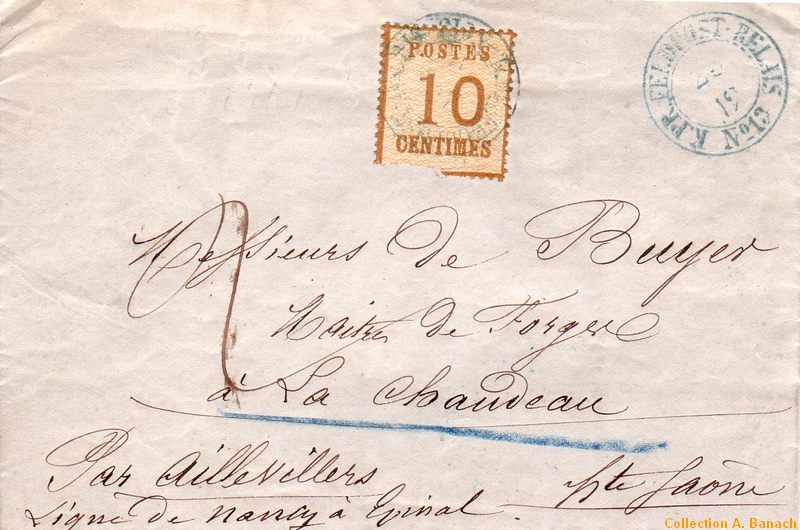 POSTES
10
CENTIMES
K.PR.FELDPOST-RELAIS No 13
Messieurs de Buyer
Maitres de Forges
à La Chaudeau
Par Aillevillers
Hte Saône
Ligne de Nancy à Epinal
Collection A. Banach